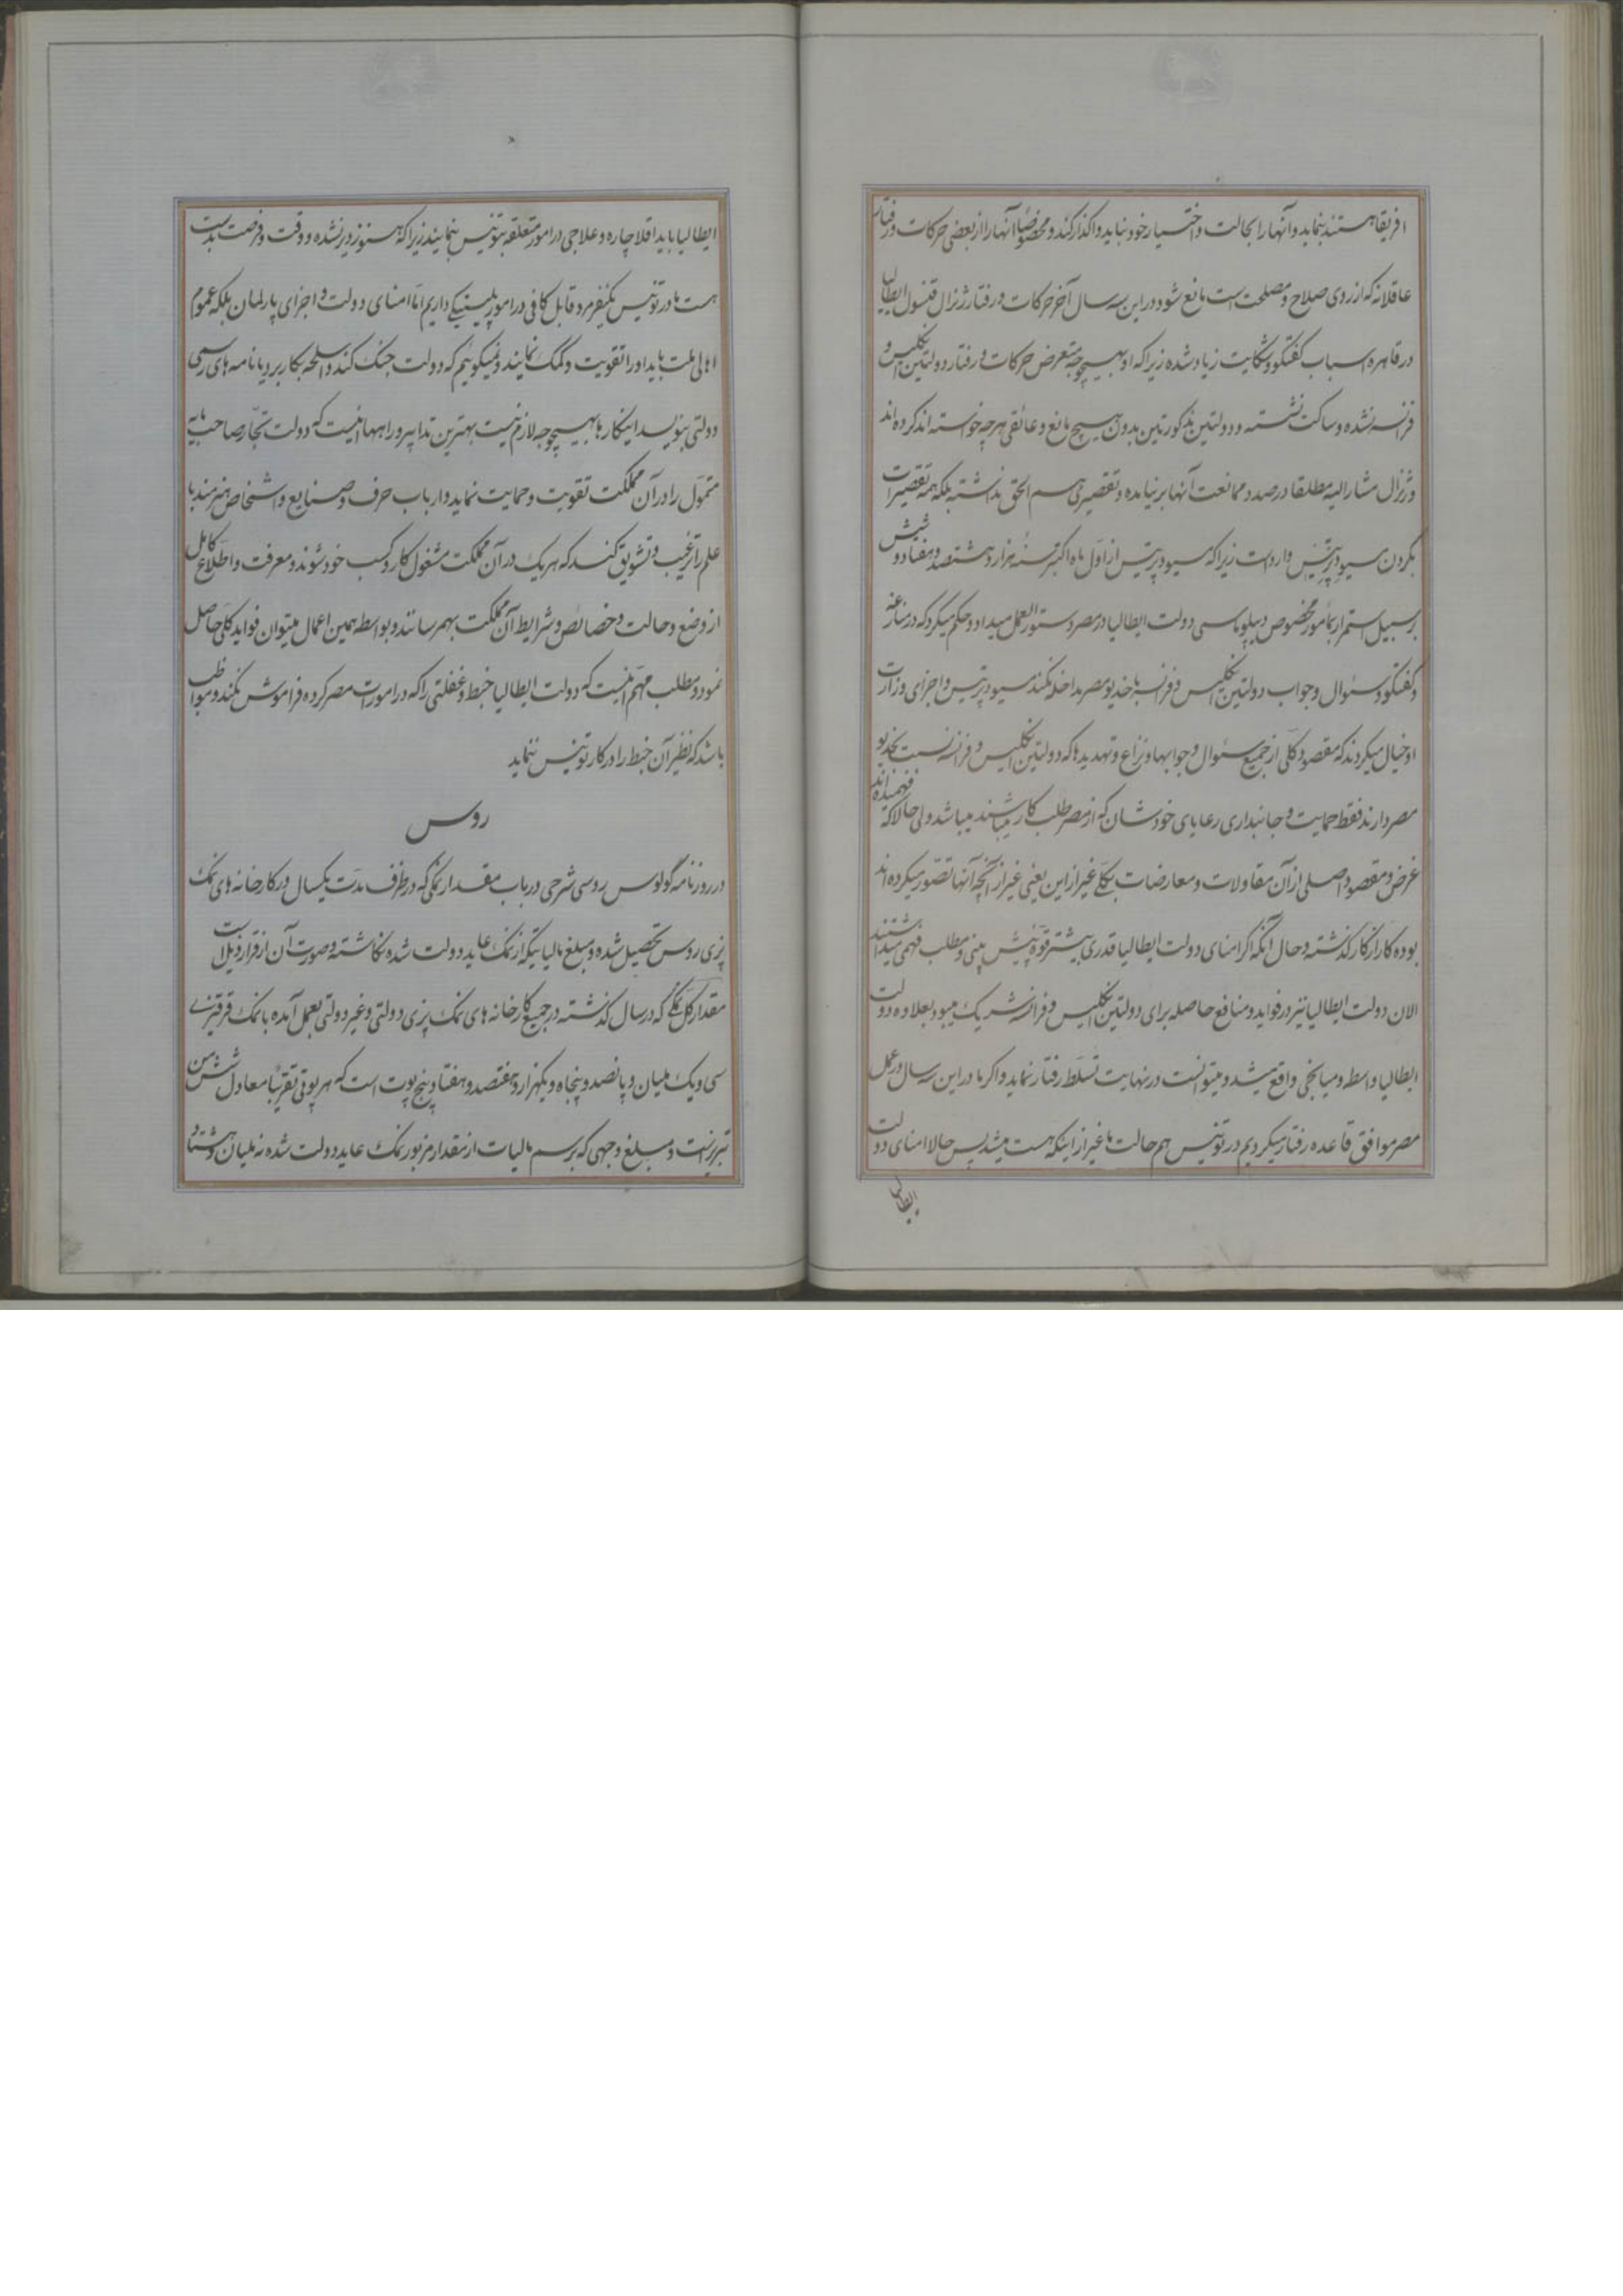 افریقا هستند بنماید و آنها را بحالت و اختسیار خود نباید واگذار کند و مخصوصاً آنها را از بعضی حرکات و رفتار
عاقلانه که از روی صلاح و مصلحت است مانع شود در این سه سال آخر حرکات و رفتار ژنرال قنسول ایطالیا
در قاهره اسباب گفتگو و شکایت زیاد شده زیرا که او بهیچوجه متعرض حرکات و رفتار دولتین انگلیس و
فرانسه نشده و ساکت نشسته و دولتین مذکورتین بدون هیچ مانع و عائقی هر چه خواسته اند کرده اند
و ژنرال مشار الیه مطلقا در صدد ممانعت آنها بر نیامده و تقصیری هم الحق نداشته بلکه همه تقصیرات
بگردن مسیو دپرتیس وارد است زیرا که مسیو دپرتیس از اول ماه اکتبر سنه هزار و هشتصد و هفتاد و شش
بر سبیل استمرار بمأمور مخصوص دیپلوماسی دولت ایطالیا در مصر دستور العمل میداد و حکم میکرد که در منازعه
و گفتگو و سئوال و جواب دولتین انگلیس و فرانسه با خدیو مصر مداخله نکند مسیو دپرتیس و اجزای وزارت
او خیال میکردند که مقصود کلی از جمیع سئوال و جوابها و نزاع و تهدیدها که دولتین انگلیس و فرانسه نسبت بخدیو
مصر دارند فقط حمایت و جانبداری رعایای خودشان که از مصر طلب کار میباشند میباشد ولی حالا که فهمیده اند
غرض و مقصود اصلی از آن مقاولات و معارضات بکلی غیر از این یعنی غیر از آنچه آنها تصور میکرده اند
بوده کار از کار گذشته و حال آنکه اگر امنای دولت ایطالیا قدری بیشتر قوه پیش بینی و مطلب فهمی میداشتند
الان دولت ایطالیا نیز در فواید و منافع حاصله برای دولتین انگلیس و فرانسه شریک میبود بعلاوه دولت
ایطالیا واسطه و میانجی واقع میشد و میتوانست در نهایت تسلط رفتار نماید و اگر ما در این سه سال در عمل
مصر موافق قاعده رفتار میکردیم در تونیس هم حالت ما غیر از اینکه هست میشد پس حالا امنای دولت
ایطالیا
ایطالیا باید اقلا چاره و علاجی در امور متعلقه بتونیس بنمایند زیرا که هنوز دیر نشده و وقت و فرصت بدست
هست ما در تونیس یکنفر مرد قابل کافی در امور پلیتیکی داریم اما امنای دولت و اجزای پارلمان بلکه عموم
اهالی ملت باید او را تقویت و کمک نمایند و نمیگوئیم که دولت جنگ کند و اسلحه بکار برد یا نامه های رسمی
دولتی بنویسد اینکارها بهیچوجه لازم نیست بهترین تدابیر و راهها اینست که دولت تجار صاحب مایه
متمول را در آن مملکت تقویت و حمایت نماید و ارباب حرف و صنایع و اشخاص هنرمند با
علم را ترغیب و تشویق کند که هر یک در آن مملکت مشغول کار و کسب خود شوند و معرفت و اطلاع کامل
از وضع و حالت و خصائص و شرایط آن مملکت بهم رسانند و بواسطه همین اعمال میتوان فواید کلی حاصل
نمود و مطلب مهم اینست که دولت ایطالیا خبط و غفلتی را که در امورات مصر کرده فراموش نکند و مواظب
باشد که نظیر آن خبط را در کار تونیس ننماید
روس
در روزنامه گولوس روسی شرحی در باب مقدار نمکی که در ظرف مدت یکسال در کارخانه های نمک
پزی روس تحصیل شده و مبلغ مالیاتیکه از نمک عاید دولت شده نگاشته و صورت آن از قرار ذیل است
مقدار کل نمکی که در سال گذشته در جمیع کارخانه های نمک پزی دولتی و غیر دولتی بعمل آمده با نمک
سی و یک ملیان و پانصد و پنجاه و یکهزار و هفتصد و هفتاد و پنج پوت است که هر پوتی تقریباً معادل شش من
تبریز است و مبلغ وجهی که برسم مالیات از مقدار مزبور نمک عاید دولت شده نه ملیان و هشتاد